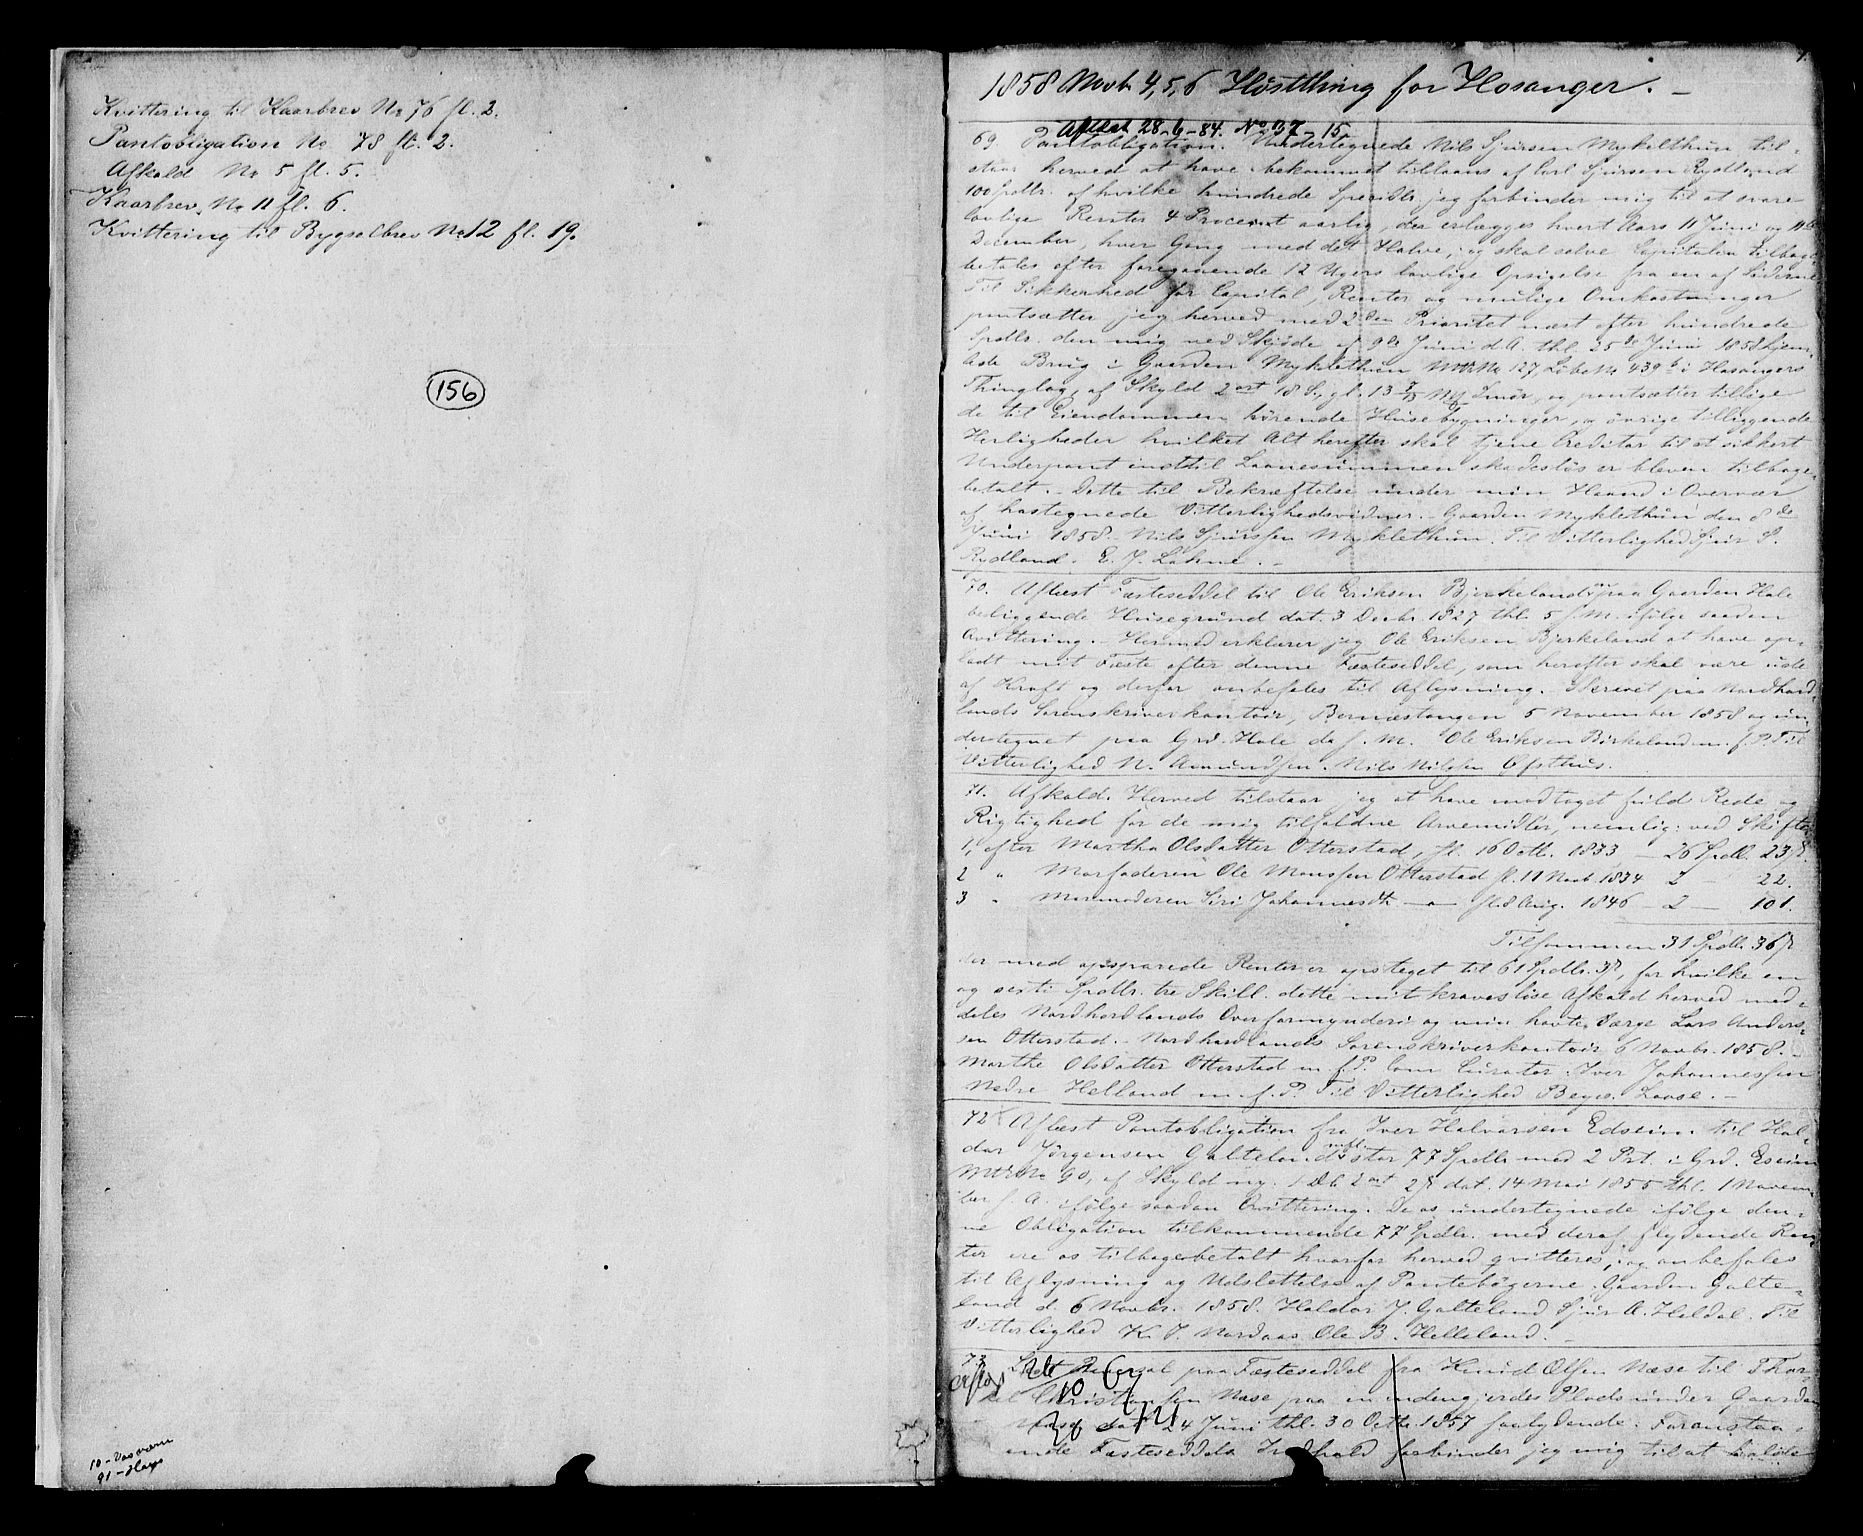 Kvittering til Kaarbrev No 76 fl. 2.
Pantobligation No 78 fl. 2.
Afkald No 5 fl. 5.
Kaarbrev No 11 fl. 6.
Kvittering til Bygselbrev No 12 fl. 19.
156
10-Vasværn
91-
1858 Novb. 4, 5, 6 Høstthing for Hosanger. –
Aflæst 28-6-84. No 37-15.
69. Pantobligation. Undertegnede Nils Sjursen Myklethun til-
staar herved at have bekommet tillaans af Carl Sjursen Rydland
100 Spdlr. af hvilke hundrede Speciedlr jeg forbinder mig til at svare
lovlige Renter 4 Procent aarlig, der erlægges hvert Aars 11 Juni og 11te
December, hver Gang med det Halve, og skal selve Capitalen tilbage-
betales efter foregaaende 12 Ugers lovlige Opsigelse fra en af Siderne
Til Sikkerhed for Capital, Renter og mulige Omkostninger
pantsætter jeg herved med 2den Prioritet næst efter hundrede
Spdlr. den mig ved Skjøde af 9de Juni d.A. thl. 25de Juni 1858 hjem-
lede Brug i Gaarden Myklethun Mtr No 127, Løbe No 439b i Hosangers
Thinglag, af Skyld 2 ort 18 S., gl. 13 Smør, og pantsætter tillige
de til Eiendommen hørende Huse bygninger, og øvrige tilliggende
Herligheder hvilket Alt herefter skal tjene Creditor til et sikkert
Underpant indtil Laanesummen skadesløs er bleven tilbage-
betalt. – Dette til Bekræftelse under min Haand i Overvær
af hostegnede Vitterlighedsvidner. – Gaarden Myklethun den 8de
Juni 1858. Nils Sjurssen Myklethun. Til Vitterlighed Sjur S.
Rydland. E. J. Løhne. –
70. Aflæst Fæsteseddel til Ole Eriksen Bjerkeland paa Gaarden Hole
beliggende Husegrund dat. 3 Decbr. 1827 thl. 5 f. M. ifølge saaden
Qvittering. – Hermed erklærer jeg Ole Eriksen Bjerkeland at have op-
ladt mit Fæste efter denne Fæsteseddel, som herefter skal være ude
af Kraft og derfor anbefales til Aflysning. Skrevet paa Nordhord-
lands Sorenskriverkontoir, Bernestangen 5 November 1858 og un-
dertegnet paa Grd. Hole ds. f. M. Ole Eriksen Birkeland m. f. P. Til
Vitterlighed N. Amundsen. Nils Nilsen Ofsthus.
71. Afkald. Herved tilstaar jeg at have modtaget fuld Rede og
Rigtighed for de mig tilfaldne Arvemidler, nemlig: ved Skifte
1, efter Martha Olsdatter Otterstad, fl. 16 Octb. 1833 – 26 Spdl. 23 S.
2 " Morfaderen Ole Monssen Otterstad fl. 11 Novb 1834 2 – 22.
3 " Mormoderen Siri Johannesdt. – fl. 8 Aug. 1846 – 2 – 101.
Tilsammen 31 Spdl. 36 S
der med opsparede Renter er opsteget til 61 Spdlr. 3 S, for hvilke en
og sexti Spdlr. tre Skill. dette mit kravesløse Afkald herved med-
deles Nordhordlands Overformynderi og min havte Værge Lars Anders-
sen Otterstad. – Nordhordlands Sorenskriverkontoir 6 Novbr. 1858. –
Marthe Olsdatter Otterstad m. f. P. Som Curator: Iver Johannessen
Nedre Helland m. f. P. Til Vitterlighed Loose. –
72. Aflæst Pantobligation fra Iver Halvorsen Edseim til Hal-
dor Jørgensen Galteland stor 77 Spdlr. med 2 Prt. i Grd. Eseim
Mtr No 90, af Skyld ny. 1 Dlr 2 ort 2 S dat. 14 Mai 1855 thl. 1 Novem-
ber f. A. ifølge saadan Qvittering. De os undertegnede ifølge den-
ne Obligation tilkommende 77 Spdlr. med deraf flydende Ren-
ter ere os tilbagebetalt hvorfor herved qvitteres, og anbefales
til Aflysning og Udslettelse af Pantebøgerne. Gaarden Galte-
land d. 6 Novbr. 1858. Haldor J. Galteland Sjur A. Heldal. Til
Vitterlighed K. J. Nordaas Ole B. Helleland. –
73. Læst Reversal paa Fæsteseddel fra Knud Olsen Næse til Thor-
Aflæst 26 67
kel Christensen Næse paa en indengjerdes Plads under Gaarden
10 121
Næse dat 24 Juni thl. 30 Octb. 1857 saalydende: Foranstaa-
36
ende Fæsteseddels Indhold forbinder jeg mig til at holde